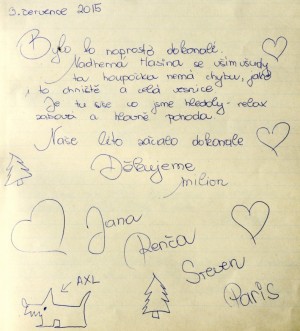 3. července 2015
Bylo to naprosto dokonalé.
Nádherná se všim všudy
ta houpačka nemá chybu, jako
to ohniště a celá vesnice
Je tu vše co jsme hledaly - relax
zábava a hlavně pohoda
Naše léto začalo dokonale
Děkujeme
milion
Jana
Renča
Steven
Paris
AXL